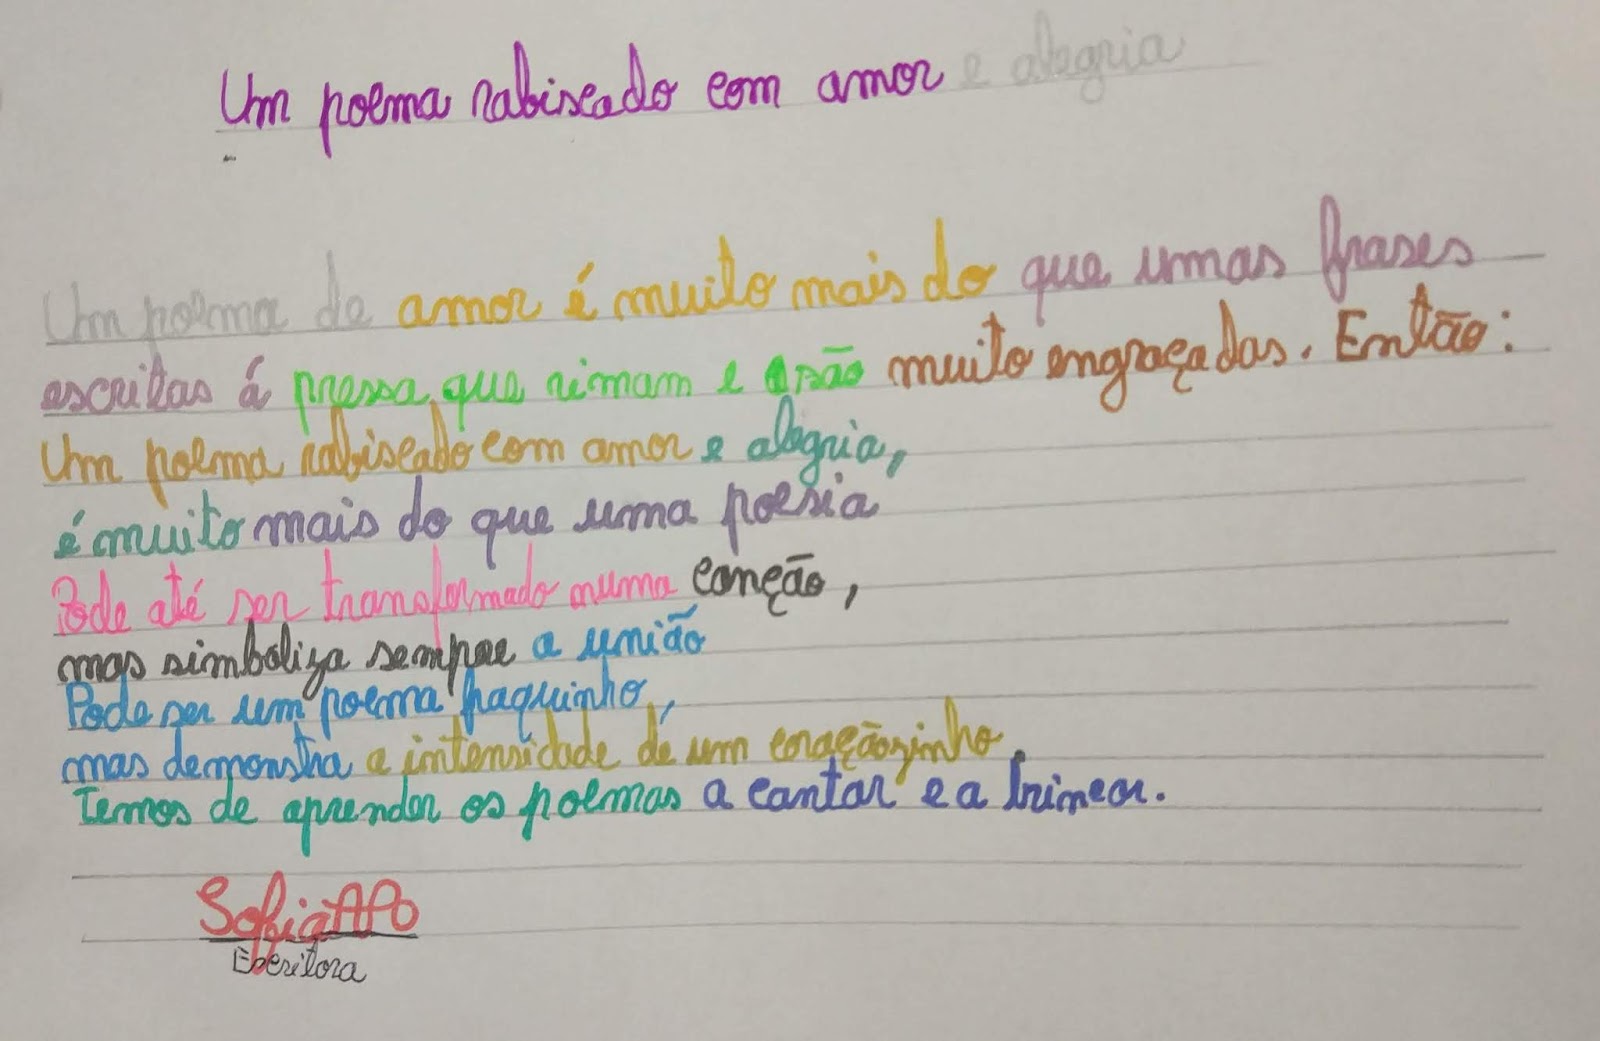 Um poema rabiscado com amor e alegria
Um poema de amor é muito mais do que umas frases
escritas á pressa que rimam e são muito engraçadas. Então:
Um poema rabiscado com amor e alegria,
é muito mais do que uma poesia
Pode até ser transformado numa canção,
mas simboliza sempre a união
Pode ser um poema fraquinho,
mas demonstra a intensidade de um coraçãozinho
Temos de aprender os poemas a cantar e a brincar.
SofiaAPO
Escritora